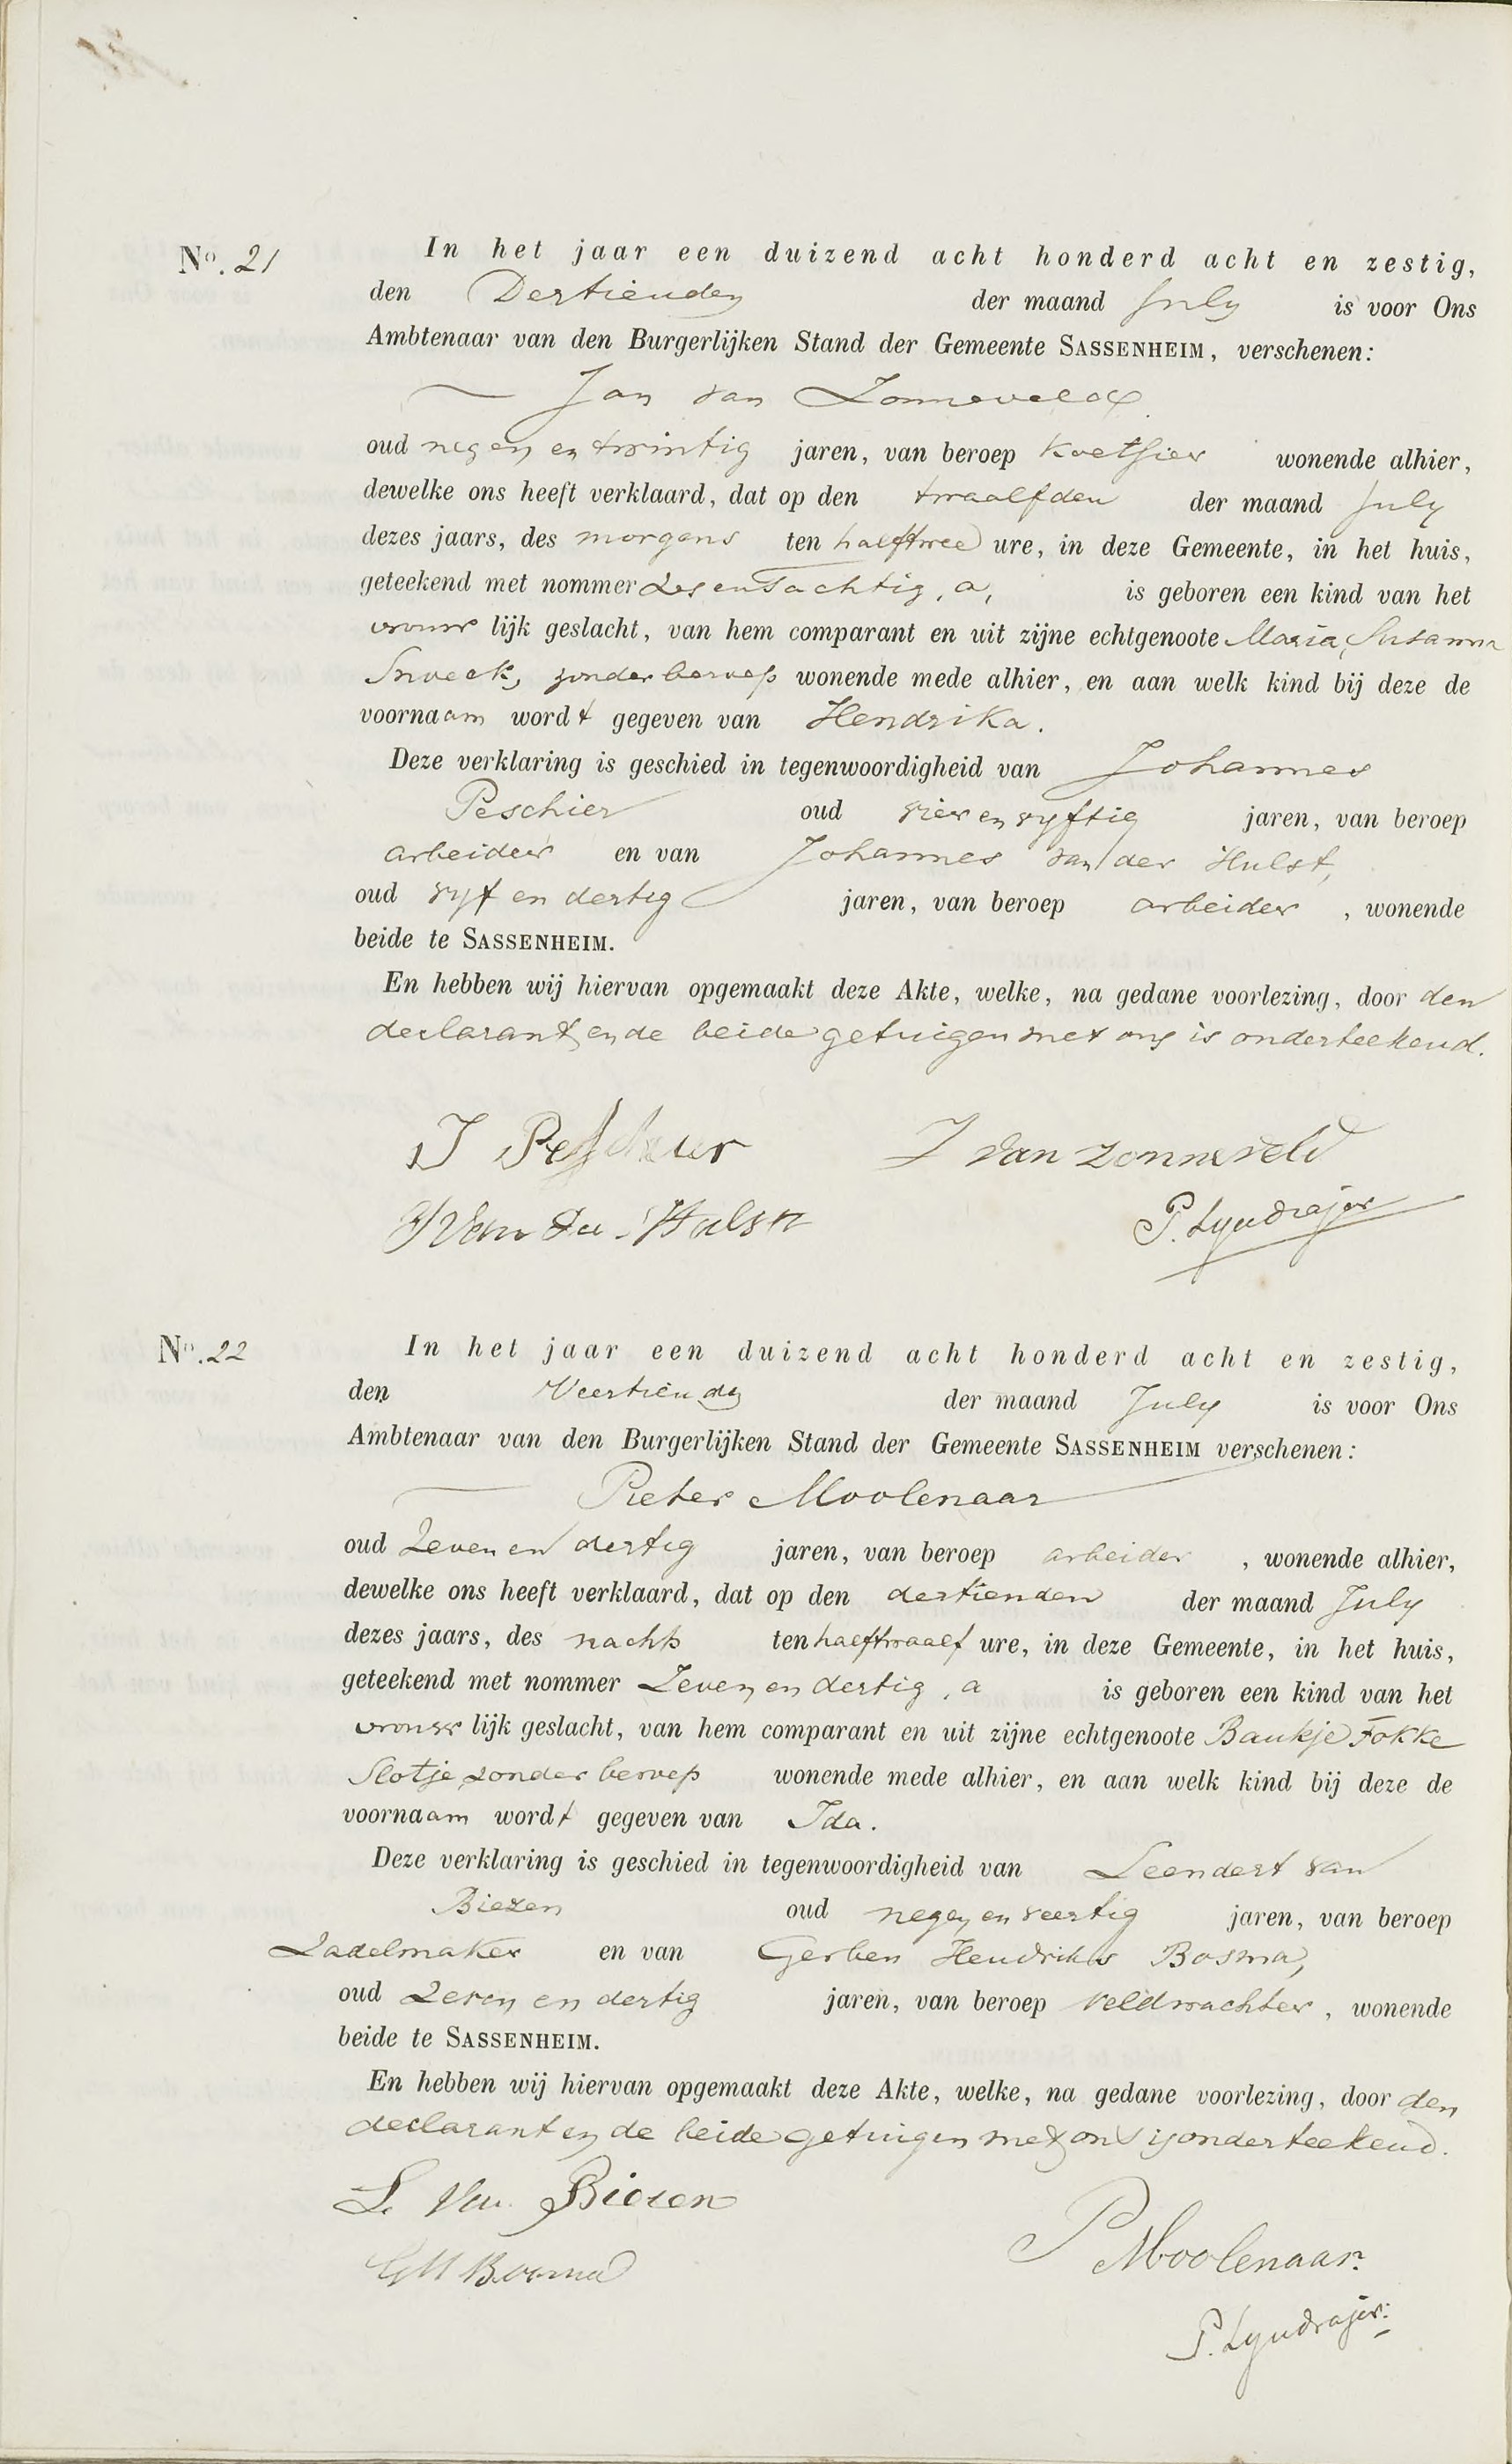 No. 21
In het jaar een duizend acht honderd acht en zestig,
den Dertienden der maand July is voor Ons
Ambtenaar van den Burgerlijken Stand der Gemeente SASSENHEIM, verschenen:
Jan van Zonneveld
oud negen en twintig jaren, van beroep Koetsier wonende alhier,
dewelke ons heeft verklaard, dat op den twaalfden der maand July
dezes jaars, des morgens ten halftwee ure, in deze Gemeente, in het huis,
geteekend met nommer Zes en Tachtig, a, is geboren een kind van het
vrouw lijk geslacht, van hem comparant en uit zijne echtgenoote Maria, Susanna
Snoeck, zonder beroep wonende mede alhier, en aan welk kind bij deze de
voornaam wordt gegeven van Hendrika.
Deze verklaring is geschied in tegenwoordigheid van Johannes
Peschier oud vier en vyftig jaren, van beroep
arbeider en van Johannes van der Hulst,
oud vyf en dertig jaren, van beroep arbeider, wonende
beide te SASSENHEIM.
En hebben wij hiervan opgemaakt deze Akte, welke, na gedane voorlezing, door den
declarant en de beide getuigen met ons is onderteekend.
J Peschier J van Zonneveld
J Van der Hulst P. Lyndrajer
No. 22
In het jaar een duizend acht honderd acht en zestig,
den Veertienden der maand July is voor Ons
Ambtenaar van den Burgerlijken Stand der Gemeente SASSENHEIM verschenen:
Pieter Moolenaar
oud Zeven en dertig jaren, van beroep arbeider, wonende alhier,
dewelke ons heeft verklaard, dat op den dertienden der maand July
dezes jaars, des nachts ten halftwaalf ure, in deze Gemeente, in het huis,
geteekend met nommer Zeven en dertig, a is geboren een kind van het
vrouw lijk geslacht, van hem comparant en uit zijne echtgenoote Baukje Fokke
Slotje, zonder beroep wonende mede alhier, en aan welk kind bij deze de
voornaam wordt gegeven van Ida.
Deze verklaring is geschied in tegenwoordigheid van Leendert van
Biezen oud negen en veertig jaren, van beroep
Zadelmaker en van Gerben Hendrikus Bosma,
oud Zeven en dertig jaren, van beroep veldwachter, wonende
beide te SASSENHEIM.
En hebben wij hiervan opgemaakt deze Akte, welke, na gedane voorlezing, door den
declarant en de beide getuigen met ons is onderteekend.
L. Van Biezen
P Moolenaar
GH Bosma
P. Lyndrajer